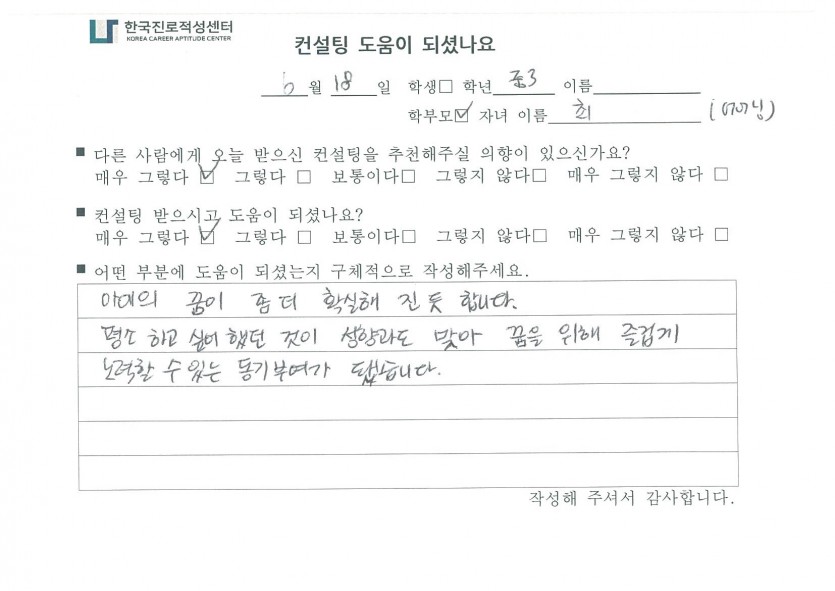 한국진로적성센터
KOREA CAREER APTITUDE CENTER
컨설팅 도움이 되셨나요
6월 18일 학생□ 학년 중3 이름
학부모☑ 자녀 이름 최 (어머님)
■ 다른 사람에게 오늘 받으신 컨설팅을 추천해주실 의향이 있으신가요?
매우 그렇다 ☑ 그렇다 □ 보통이다□ 그렇지 않다□ 매우 그렇지 않다 □
■ 컨설팅 받으시고 도움이 되셨나요?
매우 그렇다 ☑ 그렇다 □ 보통이다□ 그렇지 않다□ 매우 그렇지 않다 □
■ 어떤 부분에 도움이 되셨는지 구체적으로 작성해주세요.
아이의 꿈이 좀 더 확실해 진 듯 합니다.
평소 하고 싶어 했던 것이 성향과도 맞아 꿈을 위해 즐겁게
노력할 수 있는 동기부여가 됐습니다.
작성해 주셔서 감사합니다.